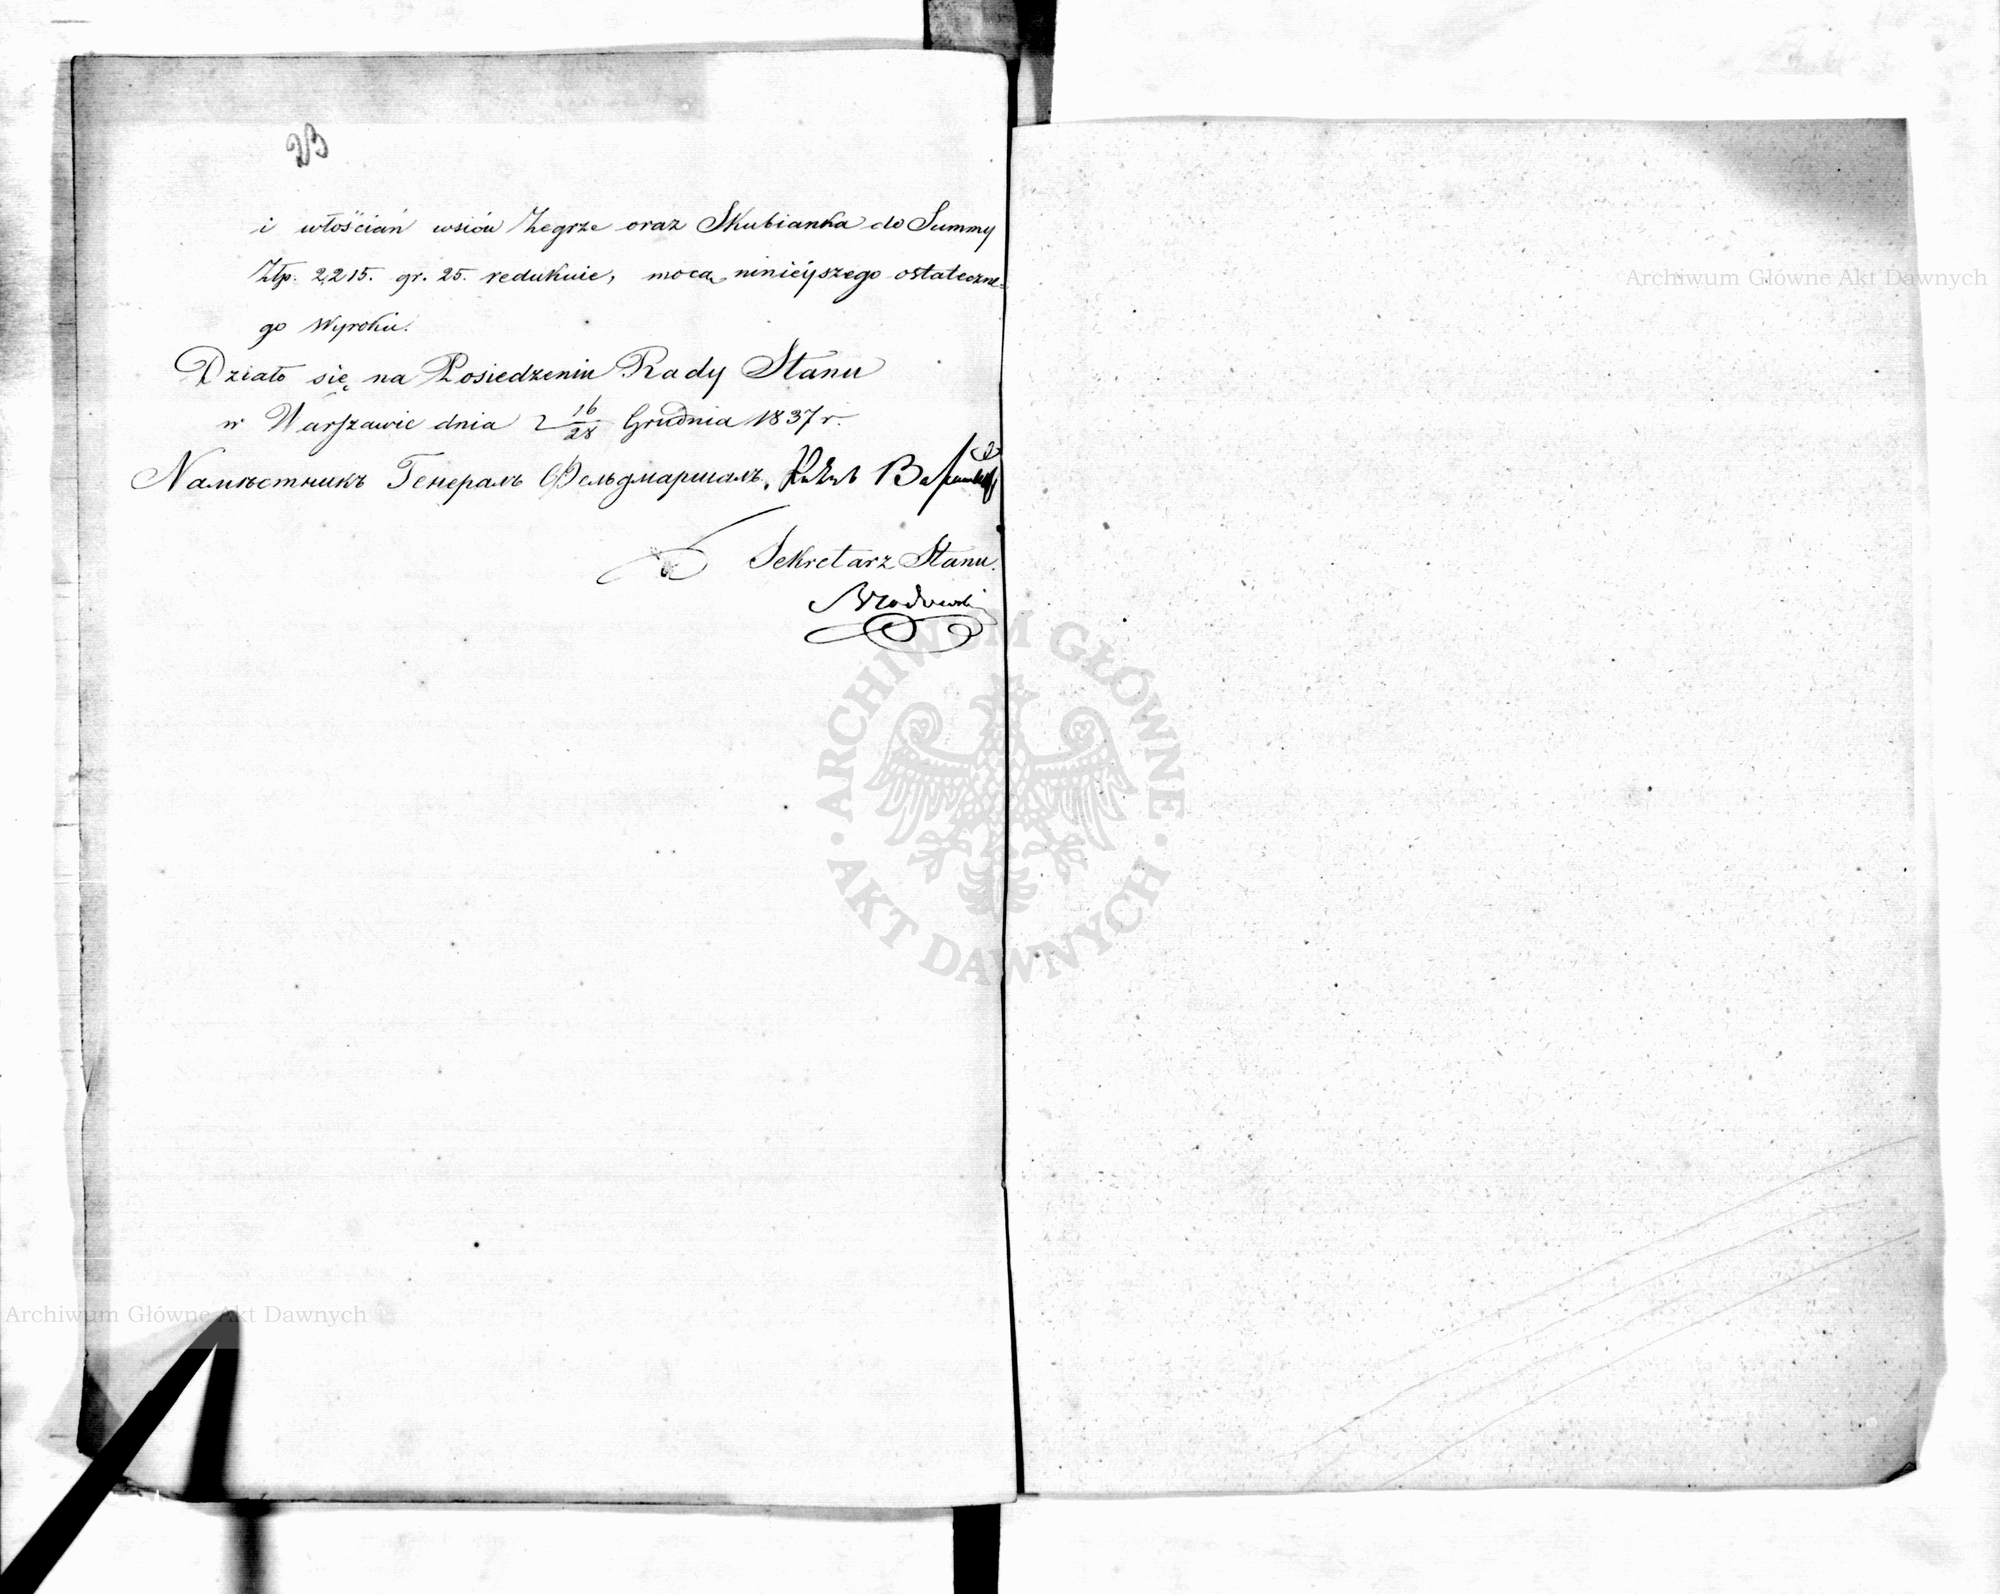 23
i włościan wsiów Zegrze oraz Skubianka do Summy
Złp. 2,215. gr. 25. redukuie, mocą ninieyszego ostateczne=
go Wyroku.
Działo się na Posiedzeniu Rady Stanu
w Warszawie dnia 16/28 Grudnia 1837 r.
Намѣстникъ Генералъ Фельдмаршалъ,
Sekretarz Stanu.
Brodowski
ARCHIWUM GŁÓWNE AKT DAWNYCH
Archiwum Główne Akt Dawnych
Archiwum Główne Akt Dawnych